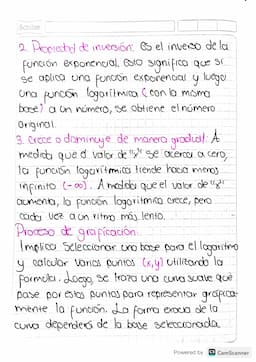 Scribe
2. Propiedad de inversión: Es el inverso de la
función exponencial. Esto significa que si
se aplica una función exponencial y luego
una función logarítmica (con la misma
base) a un número, se obtiene el número
original.
3. Crece o disminuye de manera gradual: A
medida que el valor de "x" se acerca a cero,
la función logarítmica tiende hacia menos
infinito (-∞). A medida que el valor de "x"
aumenta, la función logarítmica crece, pero
cada vez a un ritmo más lento.
Proceso de graficación:
Implica seleccionar una base para el logaritmo
y calcular varios puntos (x,y) utilizando la
formula. Luego, se traza una curva suave que
pase por estos puntos para representar gráfica-
mente la función. La forma exacta de la
curva dependerá de la base seleccionada.
Powered by CS CamScanner